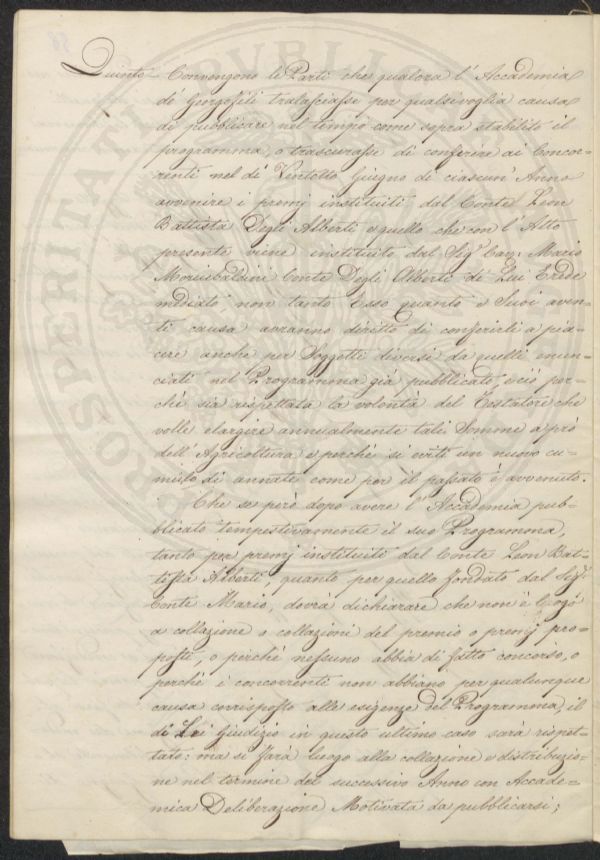 Quinto Convengono le Parti che qualora l'Accademia
dé Georgofili tralasciasse per qualsivoglia causa
di pubblicare nel tempo come sopra stabilito il
programma, o trascurasse di conferire ai Concor-
renti nel dì Ventotto Giugno di ciascun'Anno
avvenire i premj instituiti dal Conte Leon
Battista Degli Alberti e quello che con l'Atto
presente viene instituito dal Sigr. Cav: Mario
Moriubaldini Conte Degli Alberti di Lui Erede
mediato, non tanto Esso quanto i Suoi aven-
ti causa avranno diritto di conferirli a pia-
cere anche per Soggetti diversi da quelli enun-
ciati nel Programma già pubblicato, e ciò per-
chè sia rispettata la volontà del Testatore che
volle elargire annualmente tali Somme a prò
dell'Agricoltura e perchè si eviti un nuovo cu-
mulo di annate come per il passato è avvenuto.
Che se però dopo avere l'Accademia pub-
blicato tempestivamente il suo Programma,
tanto per premj instituiti dal Conte Leon Bat-
tista Alberti, quanto per quello fondato dal Sigr.
Conte Mario, dovrà dichiarare che non è luogo
a collazione o collazioni del premio o premj pro-
posti, o perchè nessuno abbia di fatto concorso, o
perchè i concorrenti non abbiano per qualunque
causa corrisposto alle esigenze del Programma, il
di Lei Giudizio in questo ultimo caso sarà rispet-
tato: ma si farà luogo alla collazione e distribuzio-
ne nel termine del successivo Anno con Accade-
mica Deliberazione Motivata da pubblicarsi;
PROSPERITATI PUBLICAE